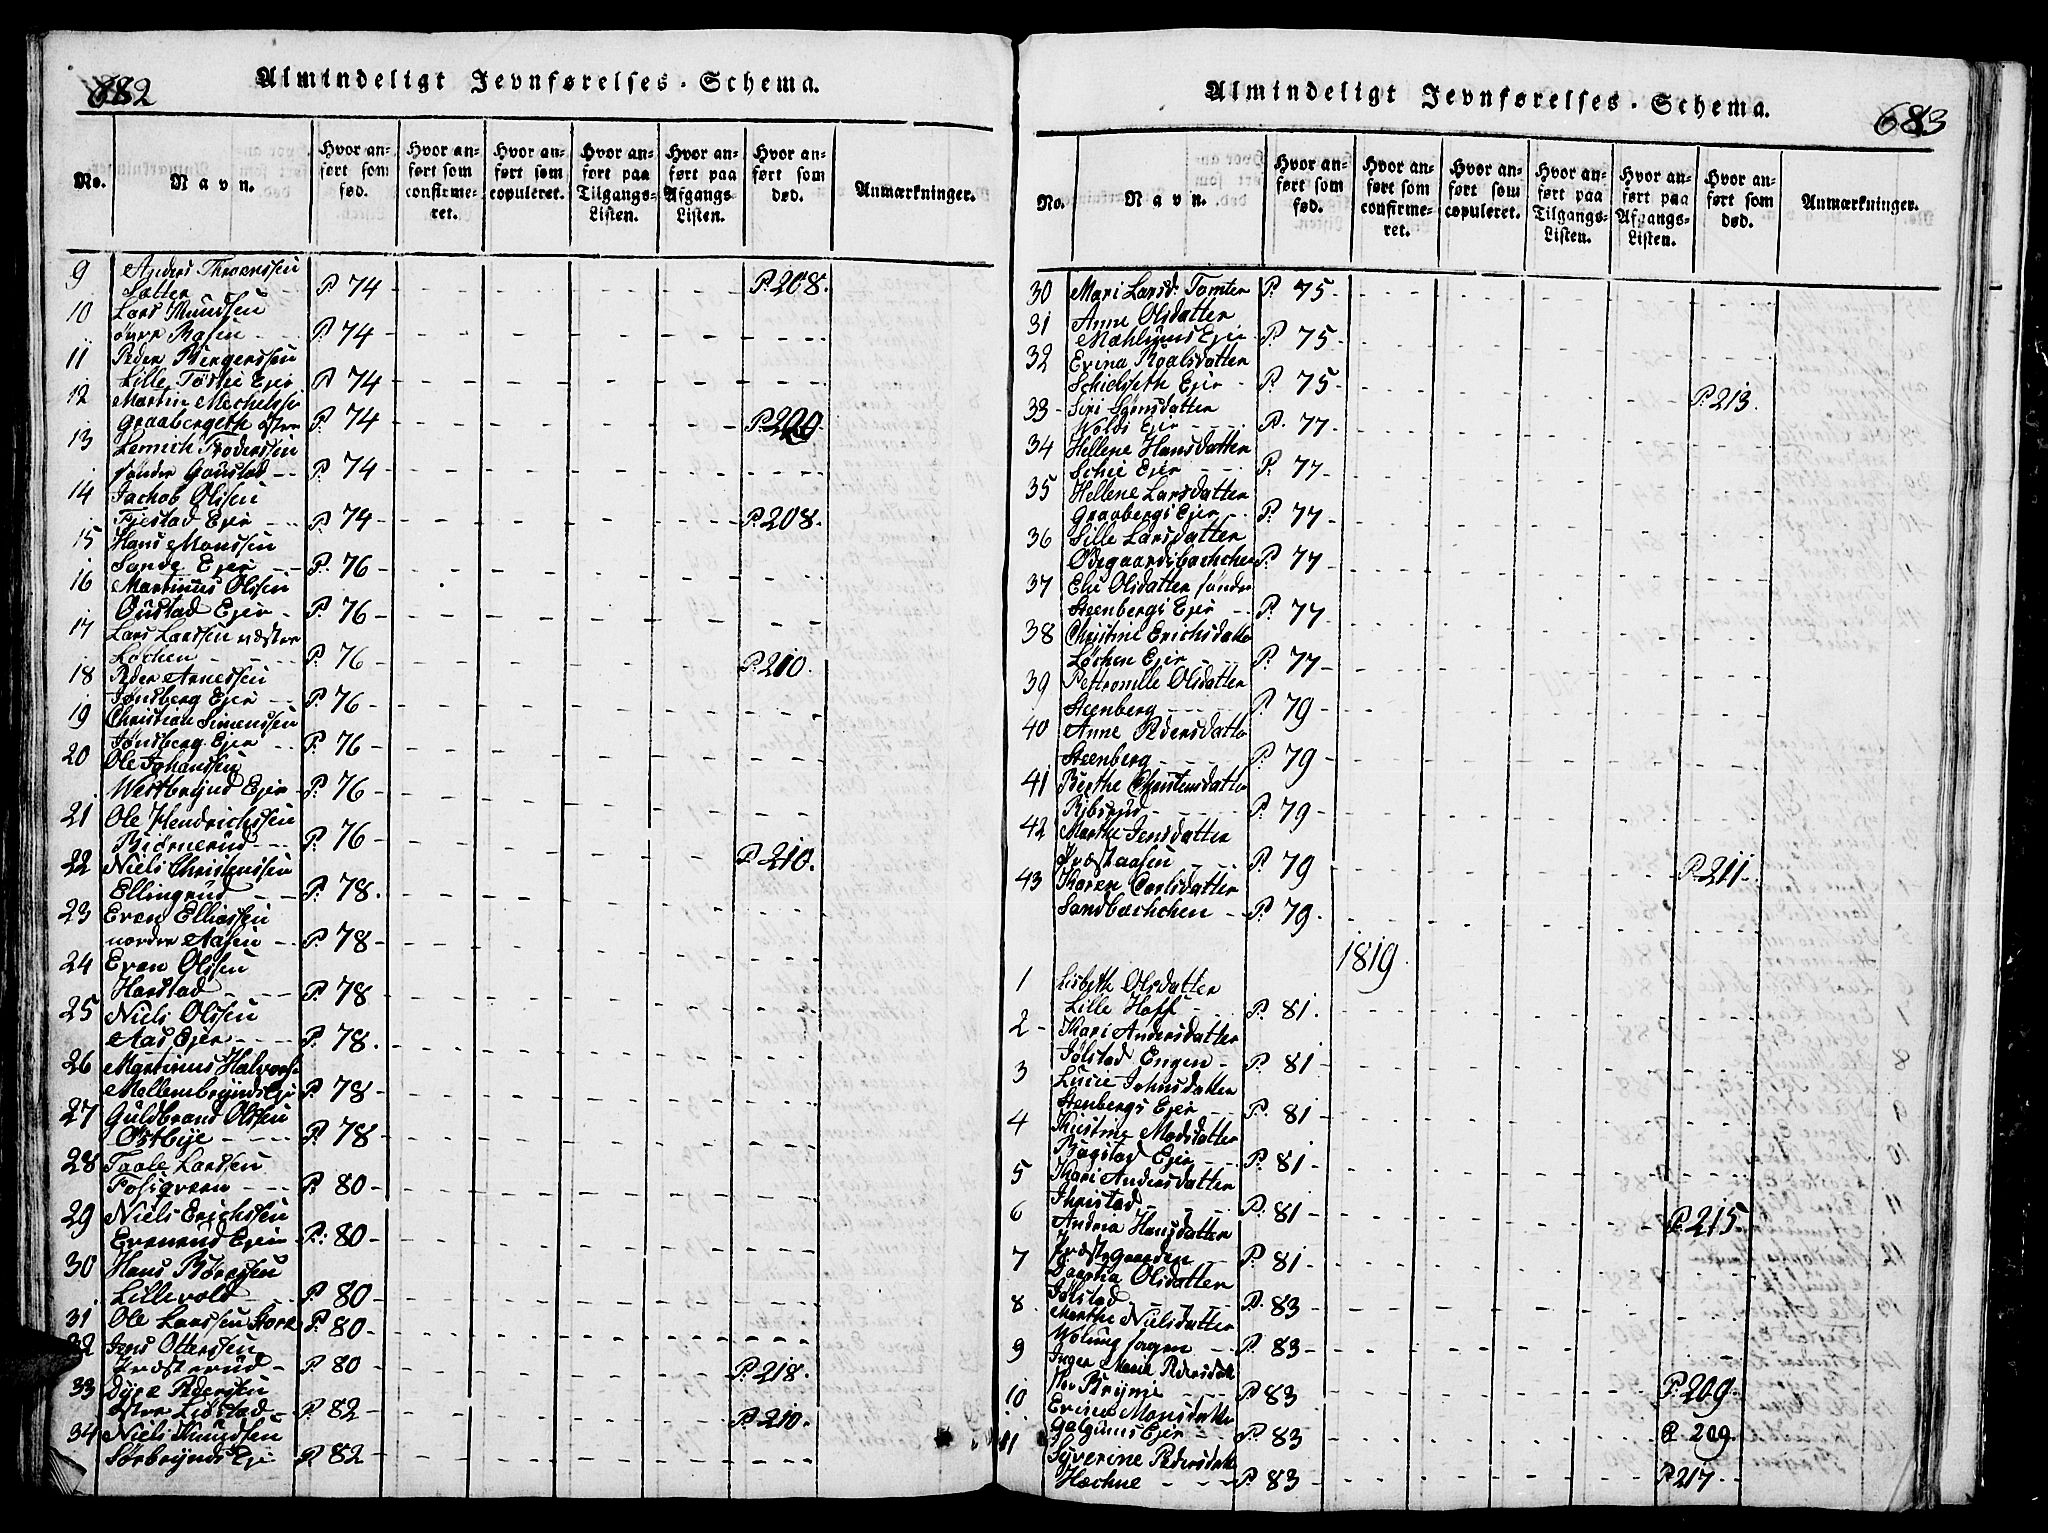 682
Almindeligt Jevnførelses-Schema.
No.
Navn.
Hvor anført som fød.
Hvor anført som confirmeret.
Hvor anført som copuleret.
Hvor anført paa Tilgangs-Listen.
Hvor anført paa Afgangs-Listen.
Hvor anført som død.
Anmærkninger.
9 Anders Throenssen
Sætter P 74 P. 208.
10 Lars Mundsen
øvre P 74
11 Peder Børgerssen
Lille Ejer P 74
12 Martin
Graabergeth østre P. 74 P. 209.
13 Lennich
søndre Goustad P. 74
14 Jachob Olssen
Fjestad Ejer P. 74 P. 208.
15 Hans Monssen
Sande Ejer P. 76
16 Martinus Olssen
Oustad Ejer P. 76
17 Lars Larssen væstre
Løchen P. 76 P. 210.
18 Peder Arnessen
Tøndberg Ejer P. 76
19 Christian Simenssen
Tøndberg Ejer P. 76
20 Ole Johanssen
Westbrynd Ejer P. 76
21 Ole Hendrichssen
Biørnerud P. 76
22 Niels Christenssen P. 210.
Ellingrud P. 78.
23 Even Elliassen
nordre Aasen P. 78
24 Even Olssen
Harstad P. 78
25 Niels Olssen
Aas Ejer P. 78.
26 Martinus Halvors
Mellembrynds Ejer P. 78
27 Guldbrand Olssen
Østbye P. 78
28 Larssen
P. 80
29 Niels Erichssen
Evenrud Ejer P. 80
30 Hans
Lillevold P. 80
31 Ole Larssen Horn P. 80
32 Jens Otterssen
P. 80 P. 218.
33 Pederssen
østre P. 82
34 Niels Knudssen P. 210.
Sørbrynds Eje P. 82
Almindeligt Jevnførelses-Schema.
683
No.
Navn.
Hvor anført som fød.
Hvor anført som confirmeret.
Hvor anført som copuleret.
Hvor anført paa Tilgangs-Listen.
Hvor anført paa Afgangs-Listen.
Hvor anført som død.
Anmærkninger.
30 Mari Larsd. Tomter P. 75
31 Anne Olsdatter
Mæhlums Ejer P. 75
32 Erina Roalsdatter
Schielseth Ejer P. 75 P. 213.
33 Siri
Wolds Ejer P. 77
34 Hellene Hansdatter
Schie Ejer P. 77
35 Hellene Larsdatter
Graabergs Ejer P. 77
36 Sille Larsdatter
Ødegaardsbachchen P. 77
37 Elie Olsdatter søndre
Steenbergs Ejer P. 77
38 Christine Erichsdatter
Løchen Ejer P. 77
39 Pettronille Olsdatter
Steenberg P. 79
40 Anne Pedersdatter
Steenberg P. 79
41 Berthe Christensdatter
Ribsrud P. 79
42 Marthe Jensdatter
P. 79 P. 211.
43 Karen Carlsdatter
Sandbachchen P. 79
1819.
1 Lisbeth Olsdatter
Lille Hoff P. 81.
2 Kari Andersdatter
Jølstad Engen P. 81
3 Lucie Johnsdatter
Stenbergs Ejer P. 81
4 Kirstine Madsdatter
Ejer P. 81
5 Kari Andersdatter
P. 81 P. 215.
6 Andria Hansdatter
P. 81
7 Dorthia Olsdatter
Jølstad P. 83
8 Marthe Nielsdatter
P. 83
9 Inger Marie Pedersdat
P 83 P. 209.
10 Erine Monsdatter
Ejer P. 83 P. 209.
11 Syverine Pedersdatt
P. 83 P. 217.